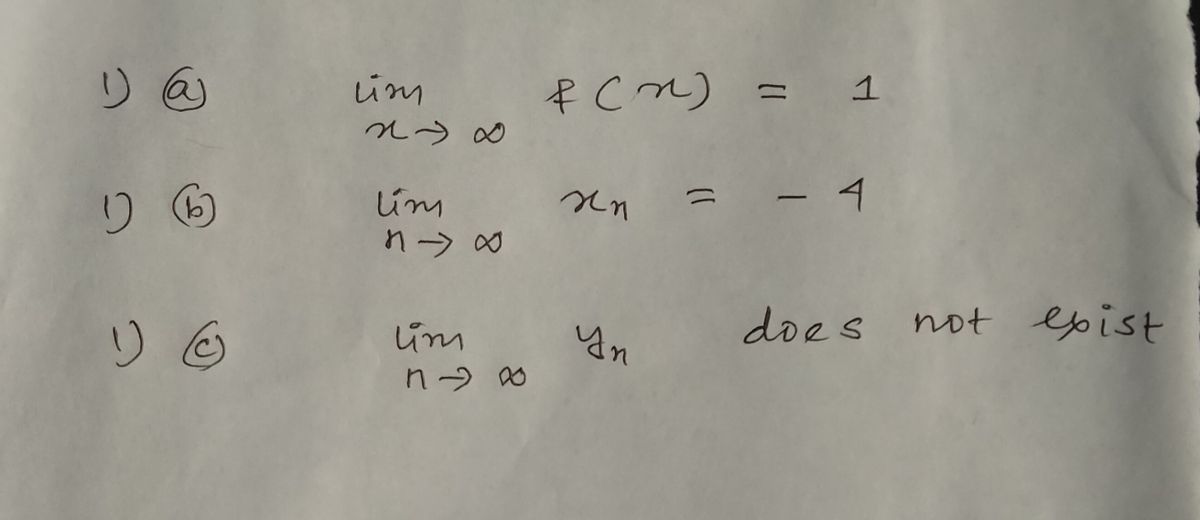 1) ⓐ lim f(x) = 1
x → ∞
1) ⓑ lim xₙ = - 4
n → ∞
1) ⓒ lim yₙ does not exist
n → ∞